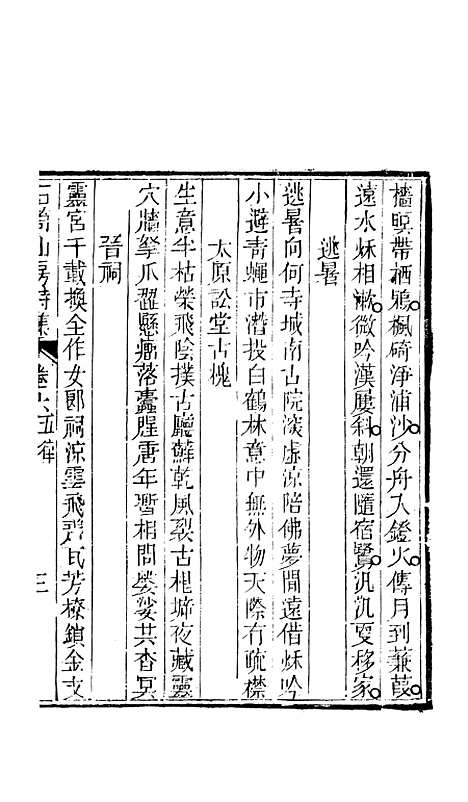 檣暝帶栖鴉楓碕淨浦沙分舟入鐙火傳月到蒹葭
遠水秌相漱微吟漢屢斜朝還隨宿鷺汎汎夏移家
逃暑
逃暑向何寺城南古院深虛涼陪佛夢閒遠借秌吟
小避青蠅市潛投白鶴林意中無外物天際有疏襟
太原訟堂古槐
生意半枯榮飛陰撲古廳蘚乾風裂古根墉夜藏靈
穴牆拏爪翟懸癭落蠹腥唐年暫相問婆娑共杳冥
晉祠
靈宮千載換全作女郎祠涼雲飛碧瓦芳橑鎖金支
山房詩集 卷六五律 三